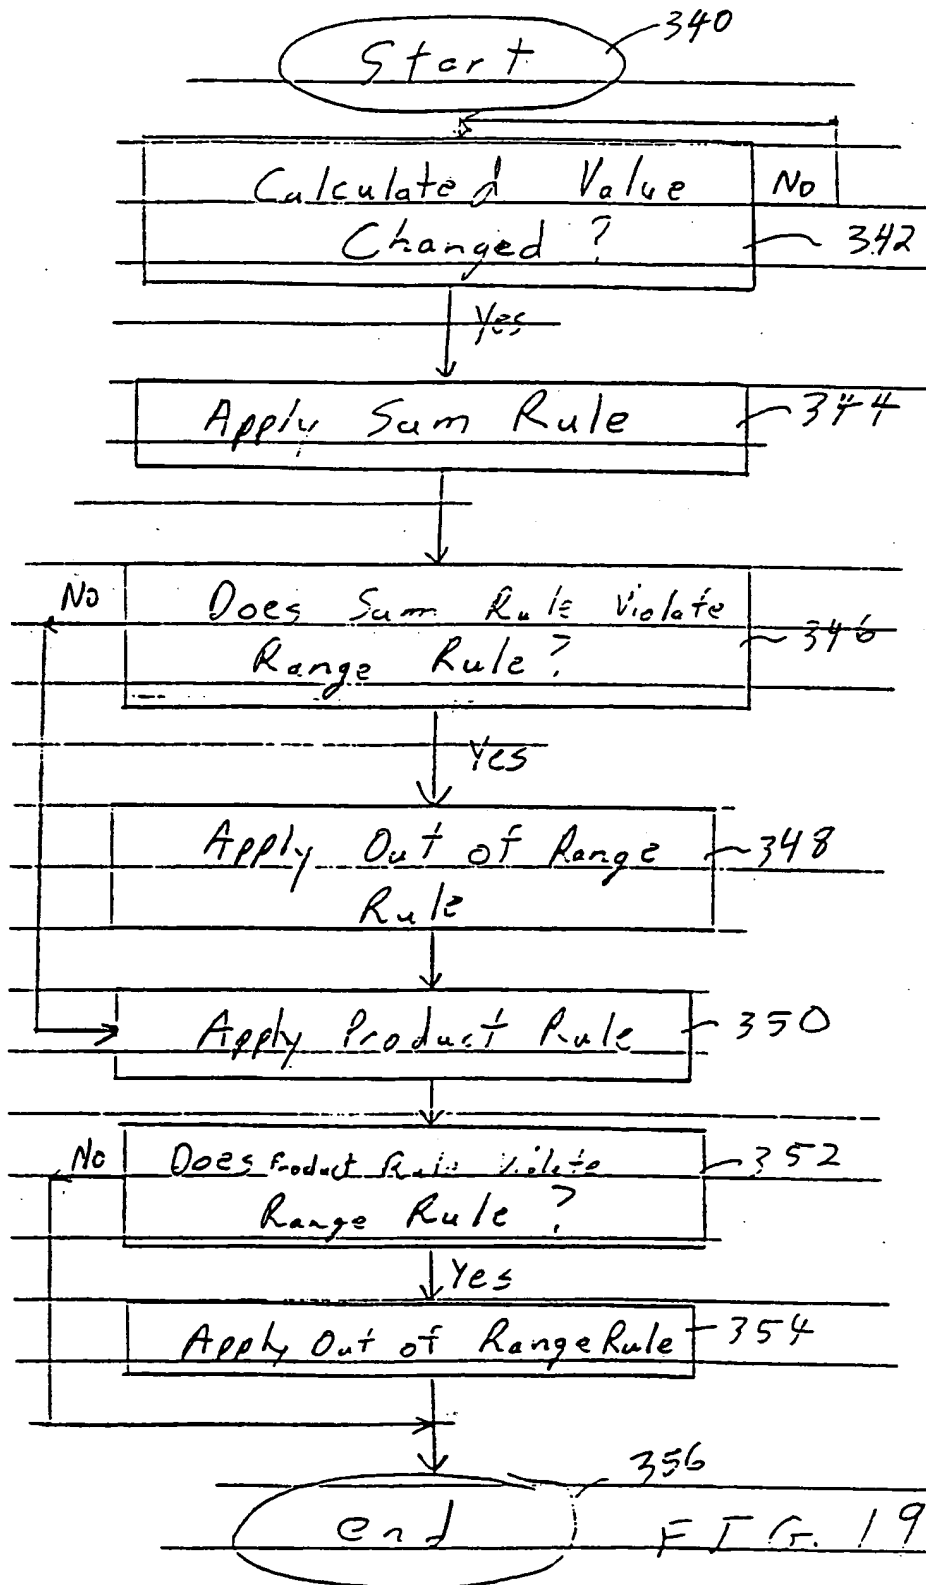 Start
340
Calculated Value
No
Changed ?
342
Yes
Apply Sum Rule
344
No
Does Sum Rule Violate
Range Rule ?
346
Yes
Apply Out of Range
348
Rule
Apply Product Rule
350
No
Does Product Rule Violate
352
Range Rule ?
Yes
Apply Out of Range Rule
354
356
end
FIG. 19